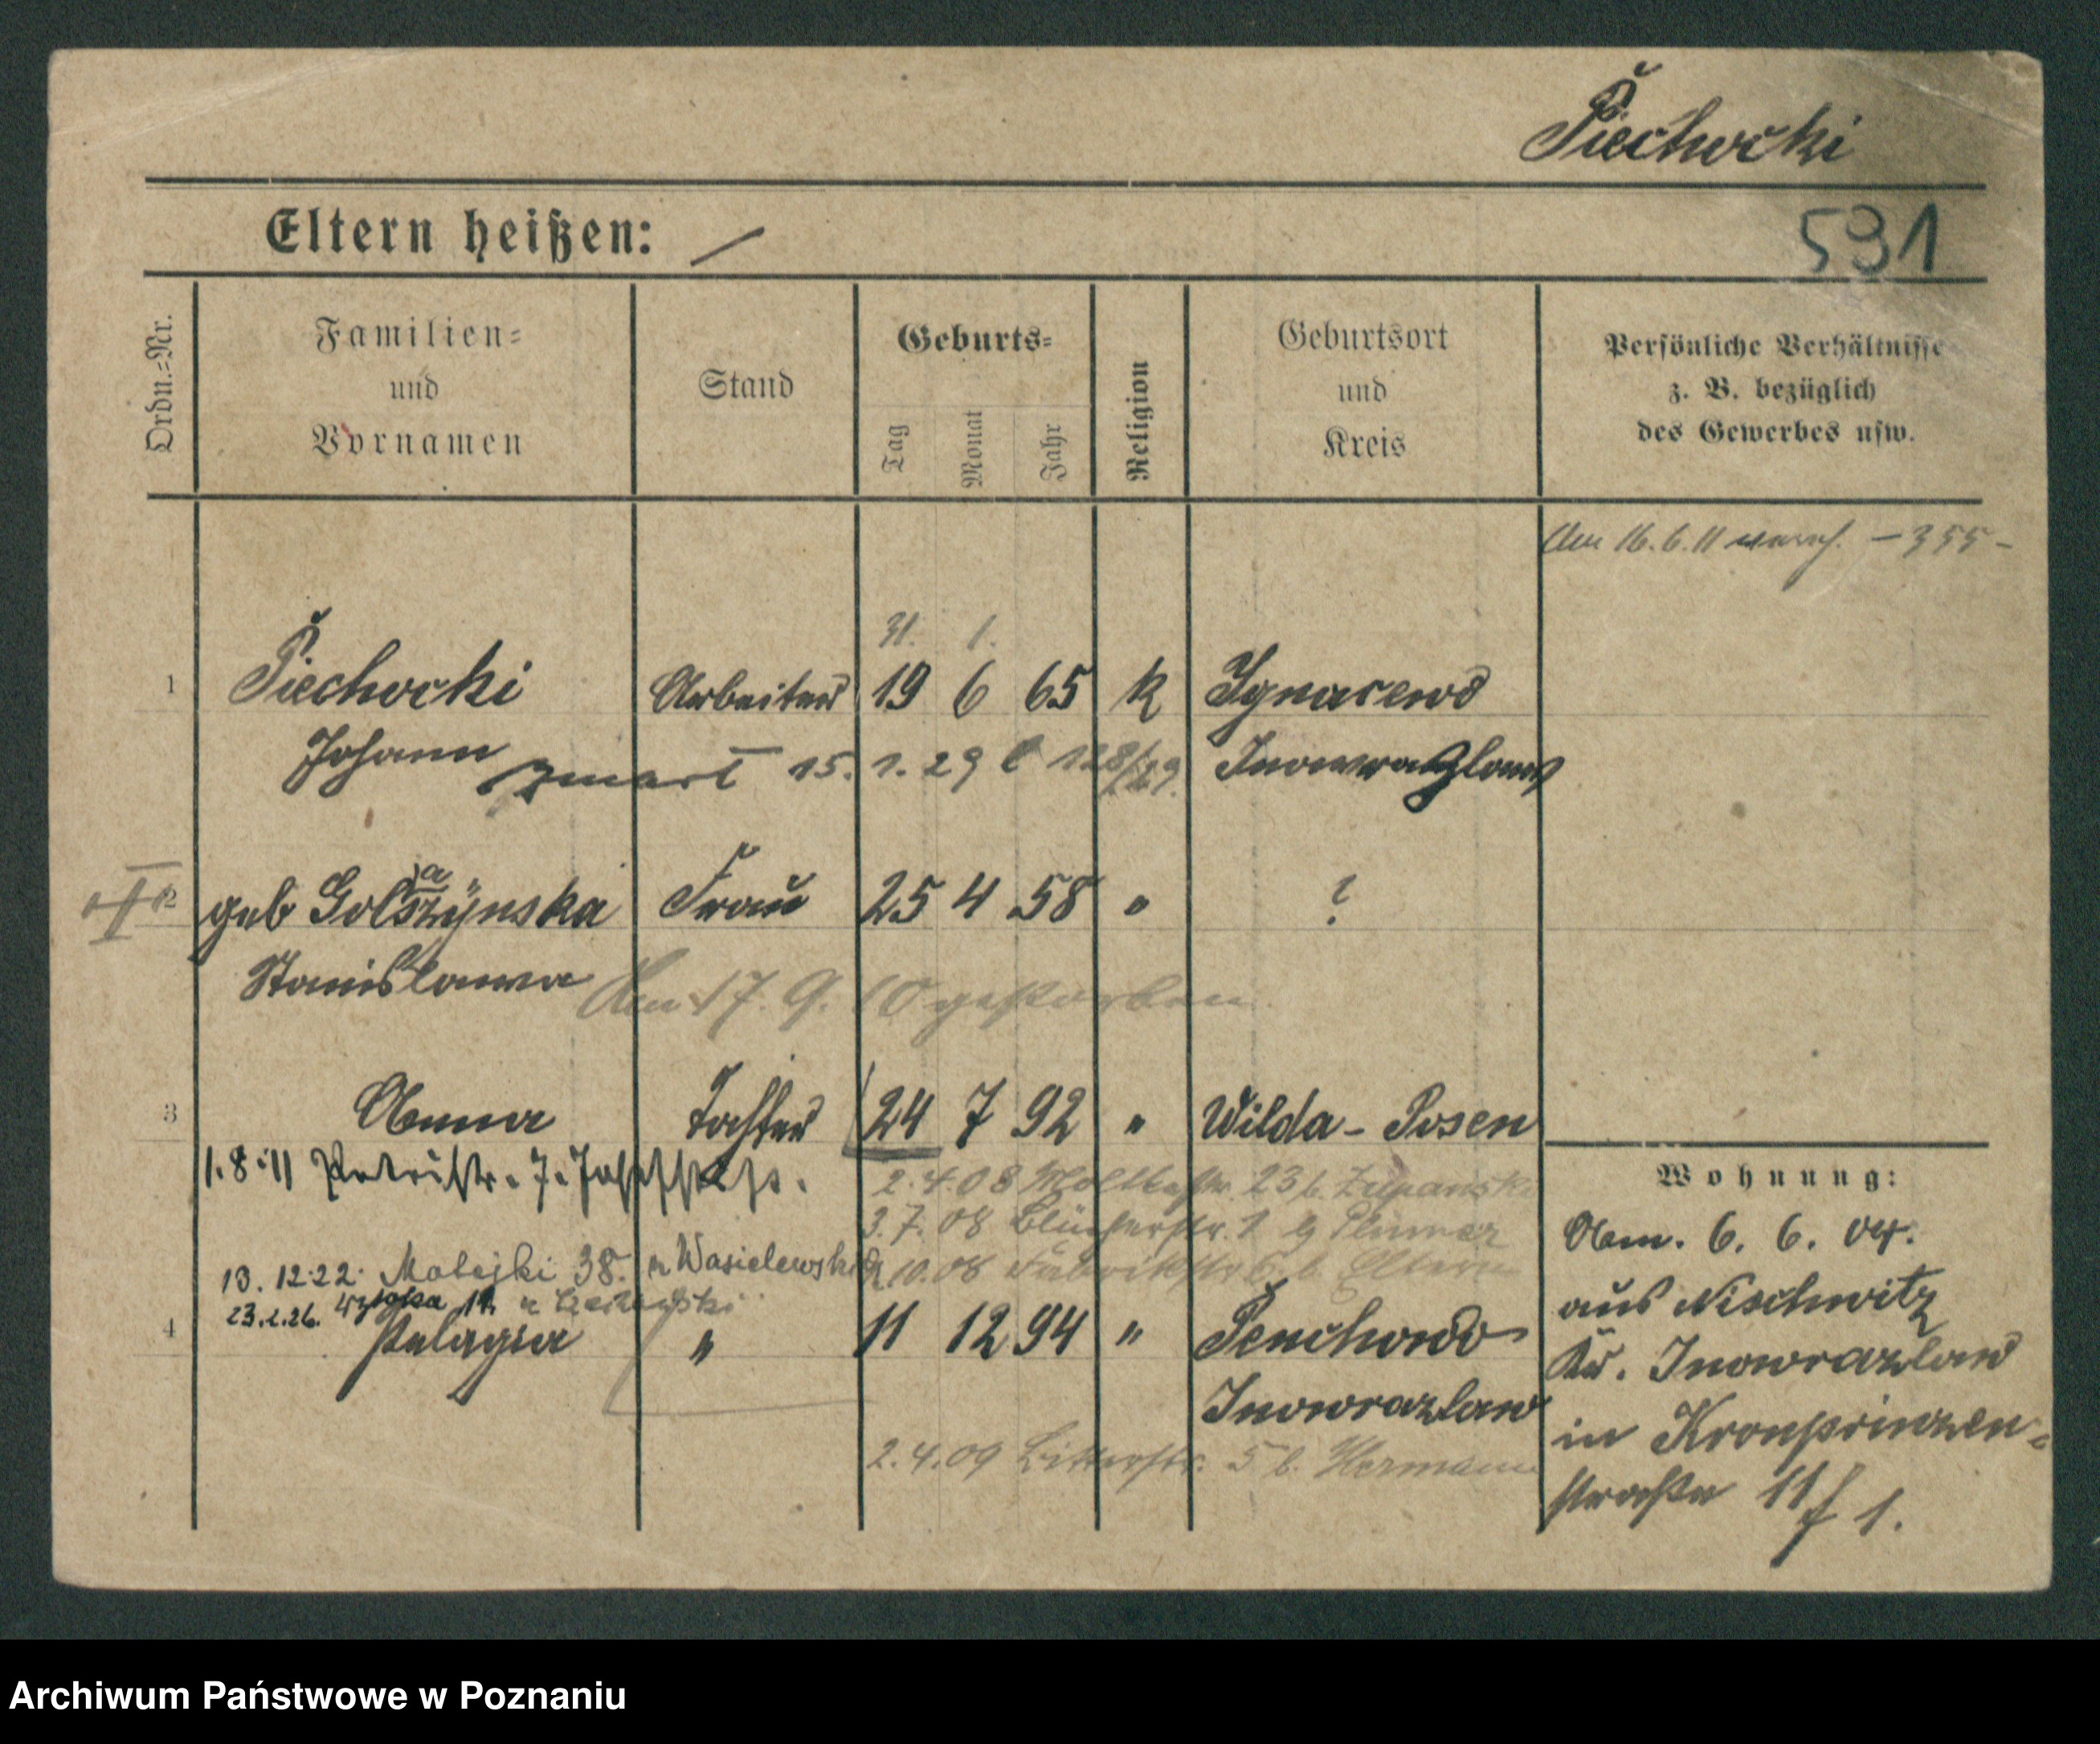 Piechocki
Eltern heißen: /
591
Ordn.-Nr.
Familien-
und
Vornamen
Stand
Geburts-
Tag
Monat
Jahr
Religion
Geburtsort
und
Kreis
Persönliche Verhältnisse
z. B. bezüglich
des Gewerbes usw.
16. 6. 11 - 355 -
31. 1.
1 Piechocki Arbeiter 19 6 65 k Ignacewo
Johann zmarł 15. 1. 29 128/29. Inowrazlaw
2 geb Golszynska Frau 25 4 58 " ?
a
II
Stanislawa
Am 17. 9. 10 gestorben
3 Anna Tochter 24 7 92 " Wilda - Posen
1. 8. 11 Petristr. 7.
2. 4. 08 Moltkestr. 23 b. Zupanski
3. 7. 08 Blücherstr. 1
13. 12. 22. Matejki 38. Wasielewski
10. 08 Fabrikstr 6. b. Eltern
23. 2. 26.
4 Pelagia " 11 12 94 " Penchowo
Inowrazlaw
2. 4. 09 Bitterstr. 5 b. Hermann
Wohnung:
Anm. 6. 6. 04.
aus Nischwitz
Kr. Inowrazlaw
in Kronprinzen-
straße 11f 1.
Archiwum Państwowe w Poznaniu